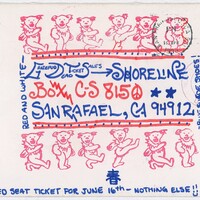 GRATEFUL DEAD TICKET SALES → SHORELINE
BOX C-S 8150
SAN RAFAEL, CA 94912
RED AND WHITE
春
ED SEAT TICKET FOR JUNE 16th — NOTHING ELSE!!